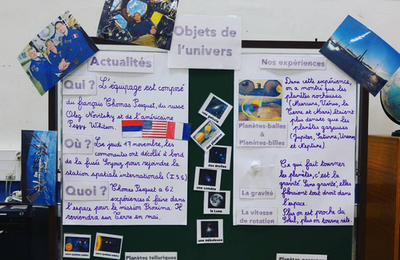 Objets de
l'univers
Actualités
Qui ? L'équipage est composé
du français Thomas Pesquet, du russe
Oleg Novitsky et de l'américaine
Peggy Whitson.
Où ? Le jeudi 17 novembre, les
cosmonautes ont décollé à bord
de la fusée Soyouz pour rejoindre la
station spatiale internationale (I.S.S)
Quoi ? Thomas Pesquet a 62
expériences à faire dans
l'espace pour la mission Proxima. Il
reviendra sur Terre en mai.
Planètes telluriques
une étoile
une comète
la Lune
une nébuleuse
Nos expériences
Planètes-balles
et
Planètes-billes
Dans cette expérience,
on a montré que les
planètes rocheuses
(Mercure, Vénus, la
Terre et Mars) étaient
plus denses que les
planètes gazeuses
(Jupiter, Saturne, Uranus
et Neptune).
La gravité
La vitesse
de rotation
Ce qui fait tourner
les planètes, c'est la
gravité. Sans gravité, elles
tout droit dans
l'espace.
Plus on est proche du
Soleil, plus on tourne vite.